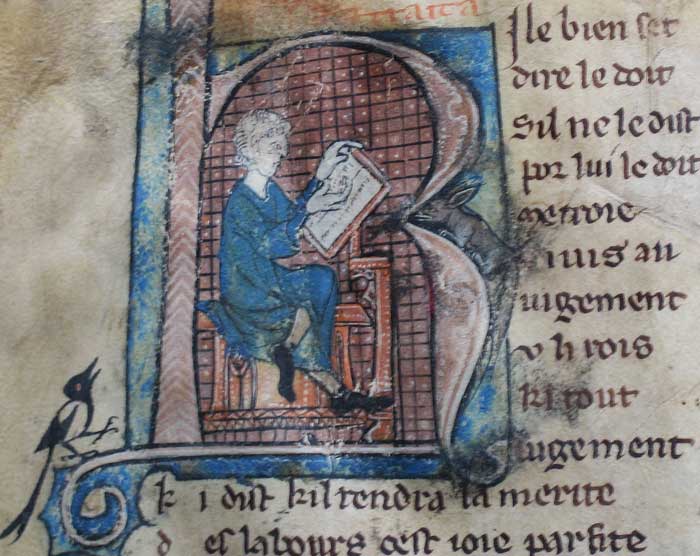 traita
Ile bien set
dire le doit
Sil ne le dist
por lui le doit
iuis au
iugement
v li rois
ki tout
iugement
k i dist kil rendra la merite
d es labours cest ioie parfite